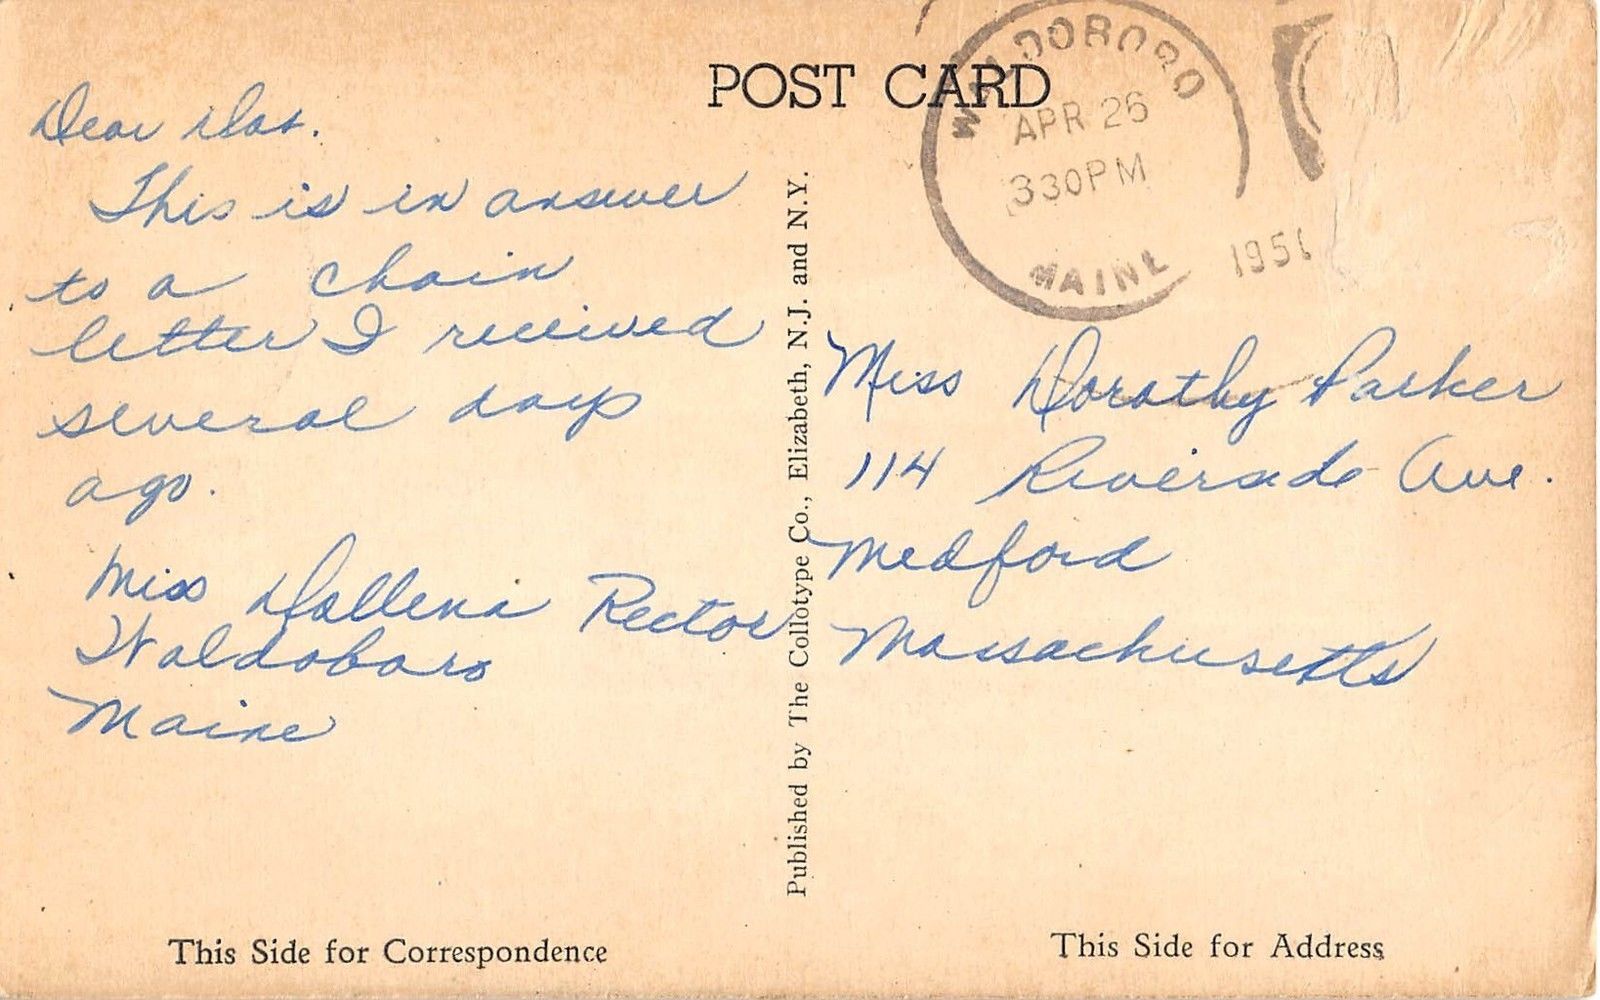 POST CARD
WALDOBORO
APR 26
330PM
MAINE
1951
Dear Dot.
This is in answer
to a chain
letter I received
several days
ago.
Miss Dallena Rector
Waldoboro
Maine
Published by The Collotype Co., Elizabeth, N.J. and N.Y.
Miss Dorothy Parker
114 Riverside Ave.
Medford
Massachusetts
This Side for Correspondence
This Side for Address